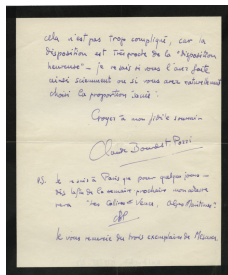 cela n'est pas trop compliqué, car la
disposition est très proche de la "disposition
heureuse" – je ne sais si vous l'avez faite
ainsi sciemment ou si vous avez naturellement
choisi la proportion
Croyez à mon fidèle souvenir
Claude
PS. Je suis à Paris que pour quelques jours –
dès la fin de la semaine prochaine mon adresse
sera "Les Collines" Vence, Alpes Maritimes"
Je vous renvoie des trois exemplaires de